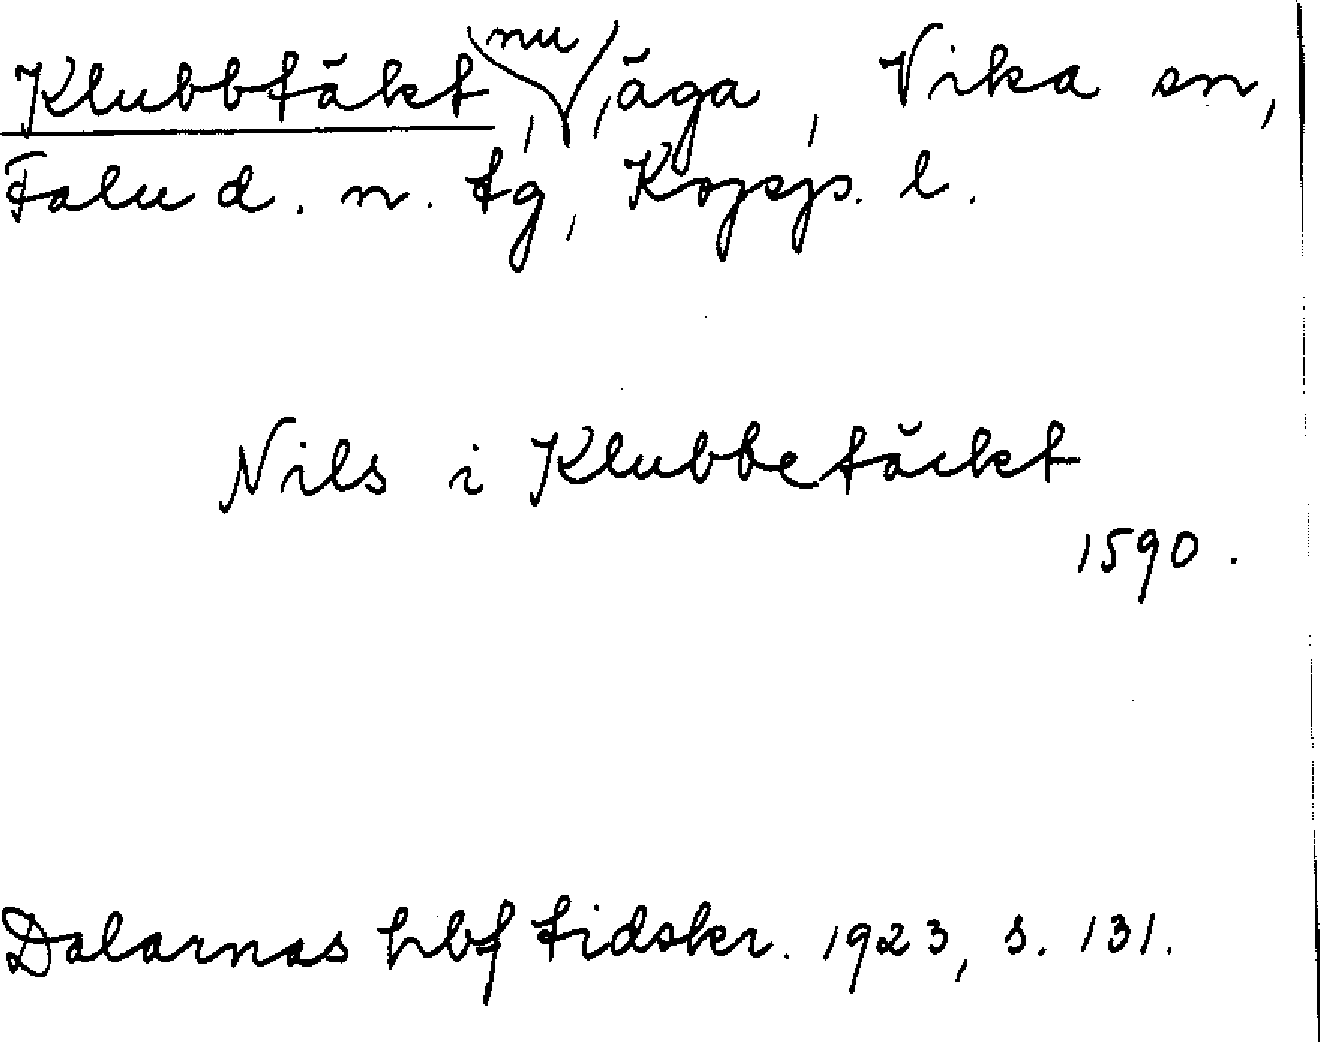 Klubbtäkt, nu äga, Vika sn,
Falu d. n. tg, Kopp. l.
Nils i Klubbetäckt
1590.
Dalarnas hbf tidskr. 1923, s. 131.